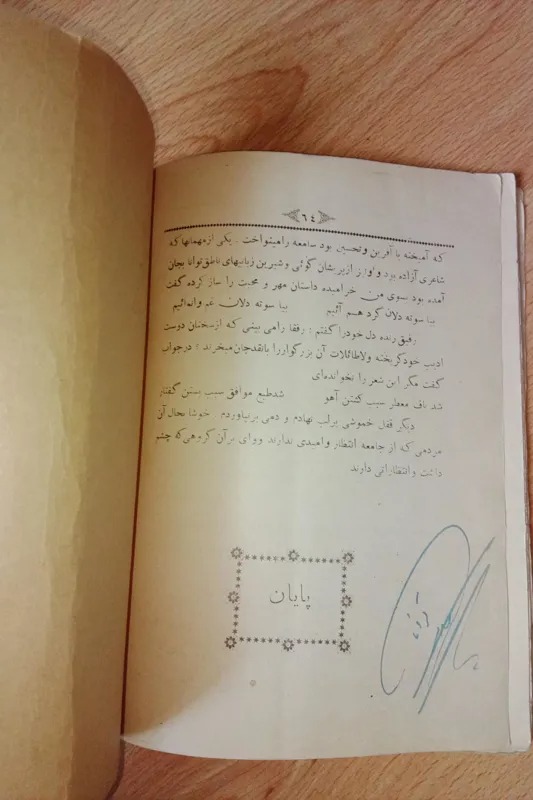 ٦٤
که آمیخته با آفرین و تحسین بود سامعه را مینواخت . یکی از مهمانها که
شاعری آزاده بود و او از پریشان گوئی و شیرین زبانیهای ناطق توانا بجان
آمده بود سوی من خرامیده داستان مهر و محبت را ساز کرده گفت
بیا سوته دلان گرد هم آئیم بیا سوته دلان غم وانمائیم
رفیق زنده دل خود را گفتم : رفقا را می بینی که از سخنان دوست
ادیب خود گریخته و لاطائلات آن بزرگوار را با نقد جان میخرند ؛ در جواب
گفت مگر این شعر را نخوانده‌ای
شد ناف معطر سبب کشتن آهو شد طبع موافق سبب بستن گفتار
دیگر قفل خموشی بر لب نهادم و دمی بر نیاوردم . خوشا بحال آن
مردمی که از جامعه انتظار و امیدی ندارند و وای بر آن گروهی که چشم
داشت و انتظاراتی دارند
پایان